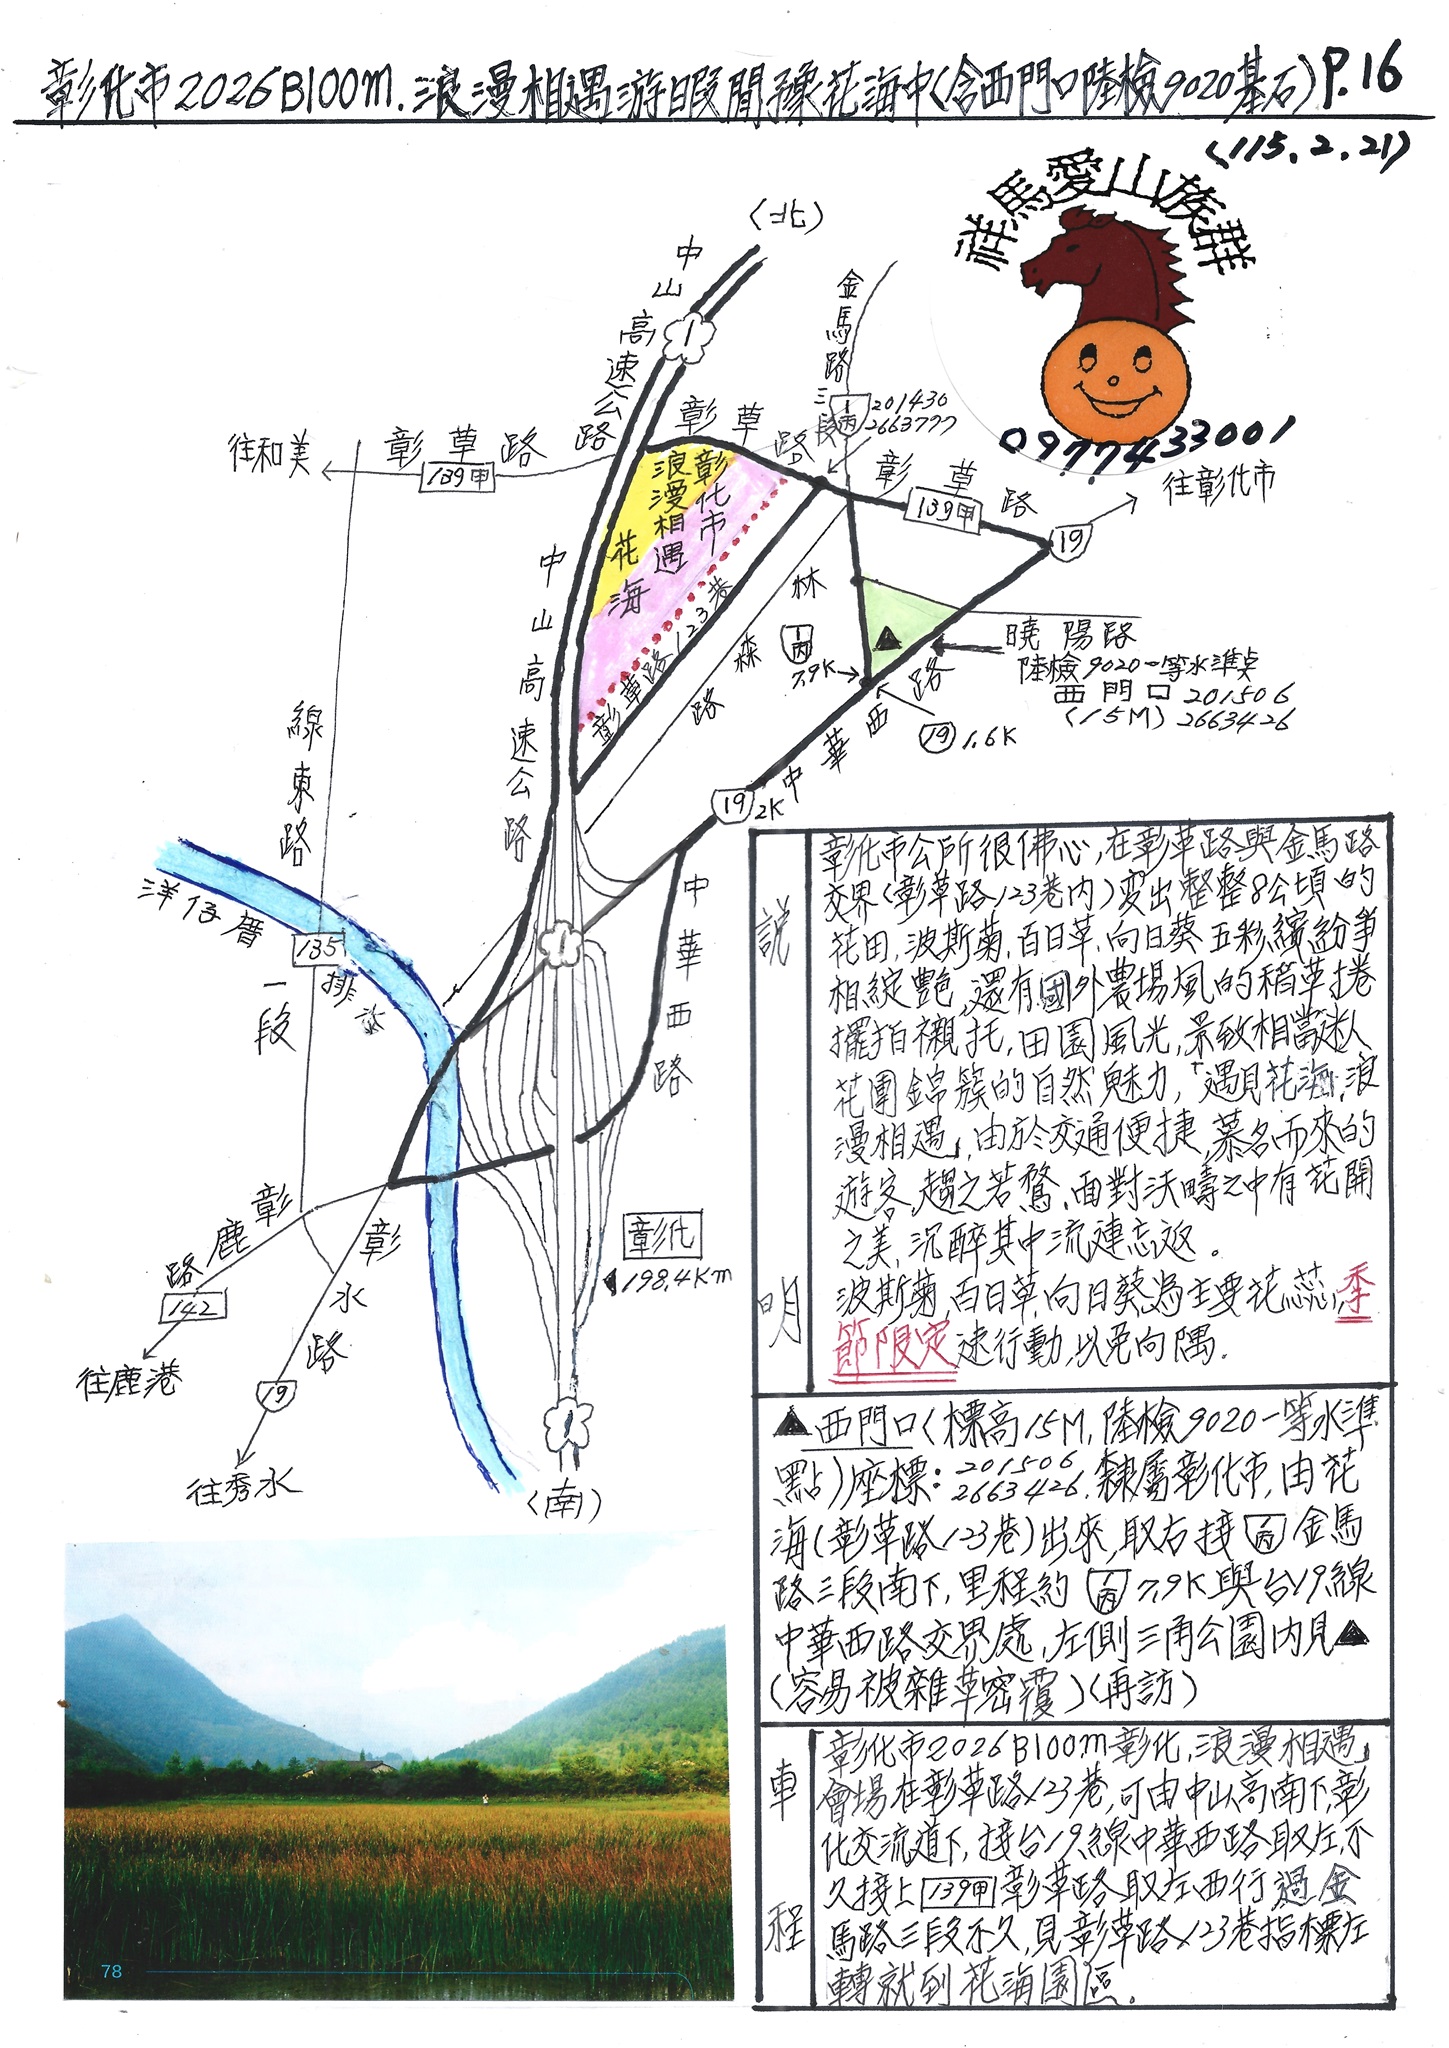 彰化市2026BLOOM.浪漫相遇游暇閒豫花海中(含西門口陸檢9020基石)P.16
(115.2.21)
祥馬愛山族群
0977433001
(北)
中山高速公路
1
金馬路三段
1丙
201430
2663797
往和美
彰草路
139甲
彰草路
彰草路
139甲
19
往彰化市
彰化市
浪漫相遇
花海
彰草路123巷
中山高速公路
林森路
1丙
7.9K
曉陽路
陸檢9020一等水準点
西門口 201506
(15M) 2663426
19 1.6K
中華西路
19 2K
線東路一段
135
洋仔厝排水
1
中華西路
彰鹿路
142
往鹿港
彰水路
19
往秀水
彰化
198.4Km
1
(南)
說明
彰化市公所很佛心,在彰草路與金馬路
交界(彰草路123巷內)変出整整8公頃的
花田,波斯菊.百日草.向日葵五彩繽紛爭
相綻艷,還有國外農場風的稻草捲
擺拍襯托,田園風光,景致相當迷人
花團錦簇的自然魅力,「遇見花海.浪
漫相遇」,由於交通便捷,慕名而來的
遊客,趨之若鶩.面對沃疇之中有花開
之美,沉醉其中流連忘返.
波斯菊,百日草,向日葵為主要花蕊,季
節限定速行動,以免向隅.
▲西門口(標高15M,陸檢9020一等水準
點)座標:201506
2663426.隸屬彰化市,由花
海(彰草路123巷)出來,取右接1丙金馬
路三段南下,里程約1丙7.9K與台19線
中華西路交界處,左側三角公園內見▲
(容易被雜草密覆)(再訪)
車程
彰化市2026BLOOM彰化,浪漫相遇」
會場在彰草路123巷,可由中山高南下,彰
化交流道下,接台19線中華西路取左,不
久接上139甲彰草路取左西行過金
馬路三段不久,見彰草路123巷指標左
轉就到花海園區.
78